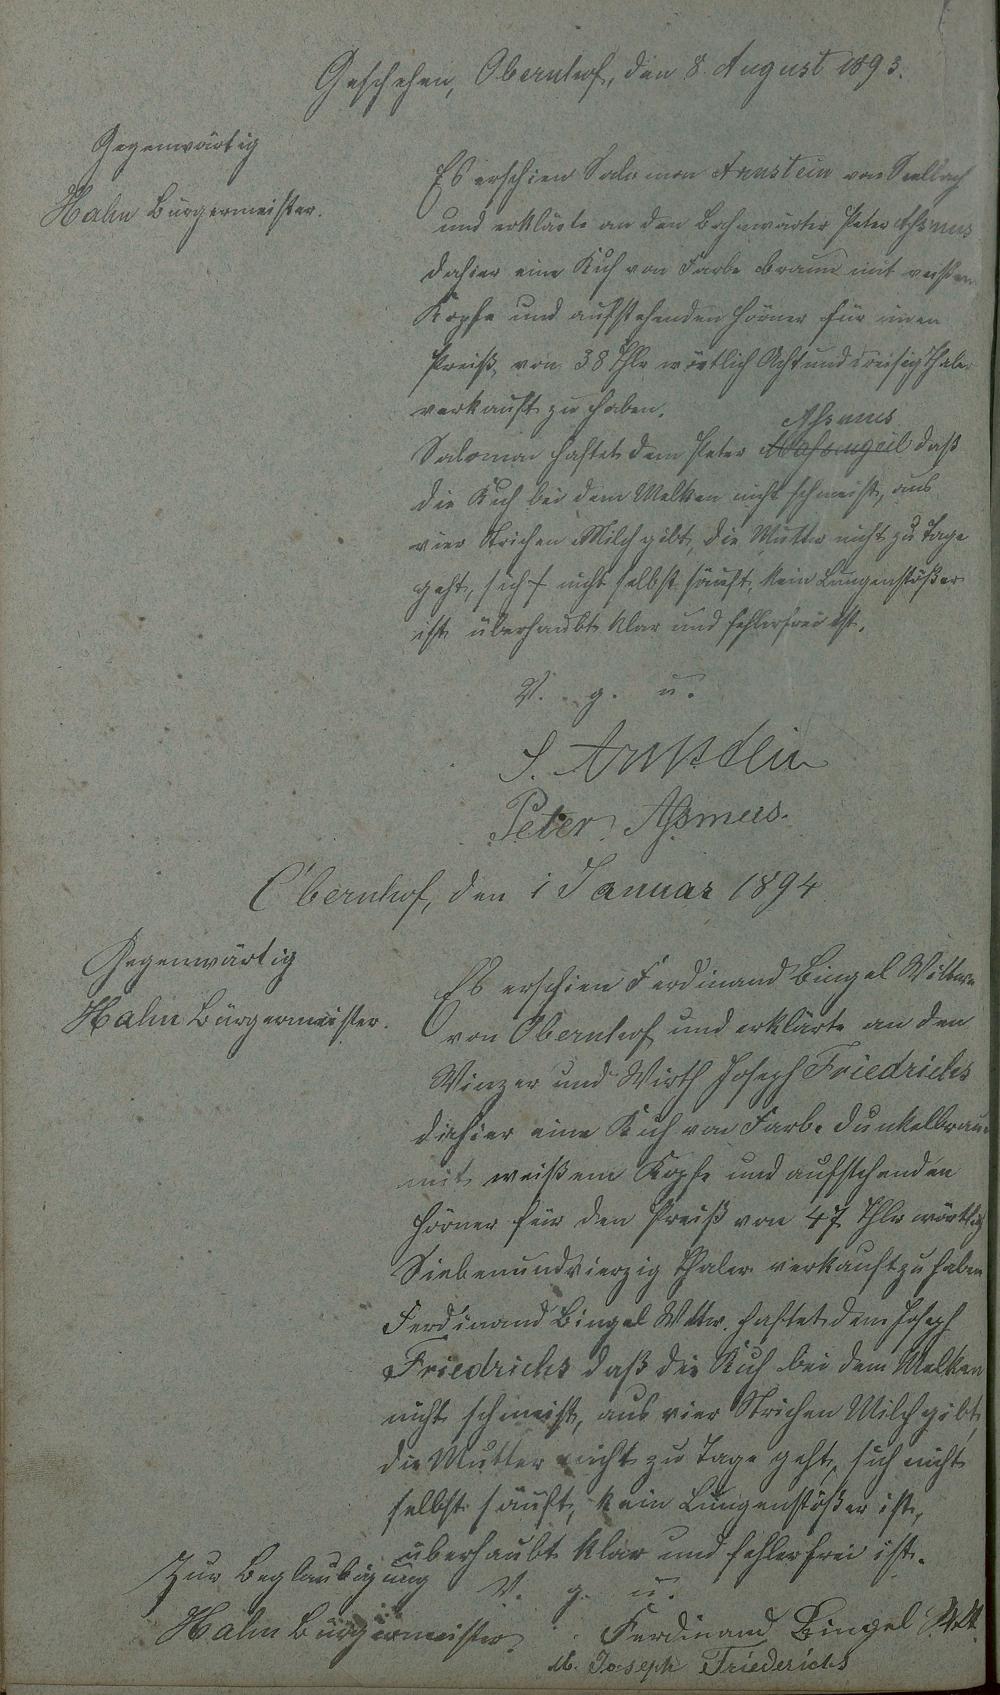 Geschehen, Obernhof, den 8. August 1893.
Gegenwärtig
Hahn Bürgermeister.
Es erschien Salomon Arnstein von Seelbach
und erklärte an den Bahnwärter Peter Aßmus
dahier eine Kuh von Farbe braun mit weißem
Kopfe und aufstehenden Hörner für einen
Preiß von 38 Thlr wörtlich Achtunddreisig Thaler
verkauft zu haben.
Aßmus
Salomon haftet dem Peter daß
die Kuh bei dem Melken nicht schmeißt, aus
vier Strichen Milch gibt, die Mutter nicht zu Tage
geht, sich nicht selbst säuft, kein Lungenstößer
ist überhaubt klar und fehlerfrei ist.
V. g. u.
S. Arnstein
Peter Aßmus.
Obernhof, den 1 Januar 1894
Gegenwärtig
Hahn Bürgermeister.
Es erschien Ferdinand Bingel Wittwe
von Obernhof und erklärte an den
Winzer und Wirth Joseph Friedrichs
dahier eine Kuh von Farbe dunkelbraun
mit weißem Kopfe und aufstehenden
Hörner für den Preiß von 47 Thlr wörtlich
Siebenundvierzig Thaler verkauft zu haben
Ferdinand Bingel Wttw. haftet dem Joseph
Friedrichs daß die Kuh bei dem Melken
nicht schmeißt, aus vier Strichen Milch gibt,
die Mutter nicht zu Tage geht, sich nicht
selbst säuft, kein Lungenstößer ist,
überhaubt klar und fehlerfrei ist.
Zur Beglaubigung
V. g. u.
Hahn Bürgermeister
Ferdinand Bingel
Joseph Friederichs